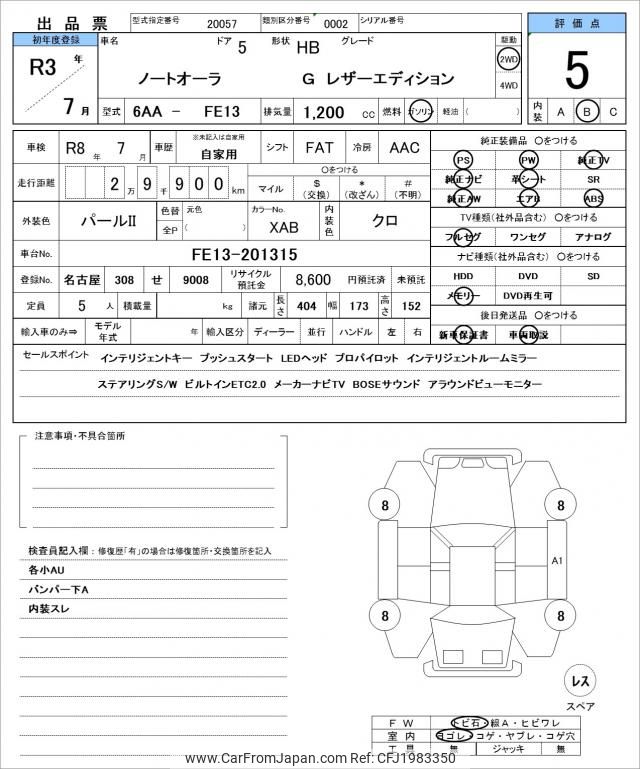 出品票 型式指定番号 20057 類別区分番号 0002 シリアル番号
評価点
初年度登録 車名 ドア 5 形状 HB グレード 駆動
R3 年 ノートオーラ G レザーエディション 2WD 5
4WD
7 月 型式 6AA － FE13 排気量 1,200 cc 燃料 ガソリン 軽油 ( ) 内装 A B C
車検 R8 年 7 月 車歴 ※未記入は自家用 自家用 シフト FAT 冷房 AAC 純正装備品 〇をつける
PS PW 純正TV
走行距離 2 万 9 千 9 0 0 km 〇をつける
マイル $ (交換) * (改ざん) # (不明) 純正ナビ 革シート SR
純正AW エアB ABS
外装色 パールⅡ 色替 元色 全P ( ) カラーNo. XAB 内装色 クロ TV種類(社外品含む) 〇をつける
フルセグ ワンセグ アナログ
車台No. FE13-201315 ナビ種類(社外品含む) 〇をつける
登録No. 名古屋 308 せ 9008 リサイクル預託金 8,600 円預託済 未預託 HDD DVD SD
定員 5 人 積載量 kg 諸元 長さ 404 幅 173 高さ 152 メモリー DVD再生可
後日発送品 〇をつける
輸入車のみ⇒ モデル年式 年 輸入区分 ディーラー 並行 ハンドル 左 右 新車保証書 車両取説
セールスポイント インテリジェントキー プッシュスタート LEDヘッド プロパイロット インテリジェントルームミラー
ステアリングS/W ビルトインETC2.0 メーカーナビTV BOSEサウンド アラウンドビューモニター
注意事項・不具合箇所
8 8
検査員記入欄：修復歴「有」の場合は修復箇所・交換箇所を記入
各小AU
A1
バンパー下A
内装スレ
8 8
レス
スペア
FW トビ石・線A・ヒビワレ
室内 ヨゴレ・コゲ・ヤブレ・コゲ穴
工具 無 ジャッキ 無
www.CarFromJapan.com Ref: CFJ1983350